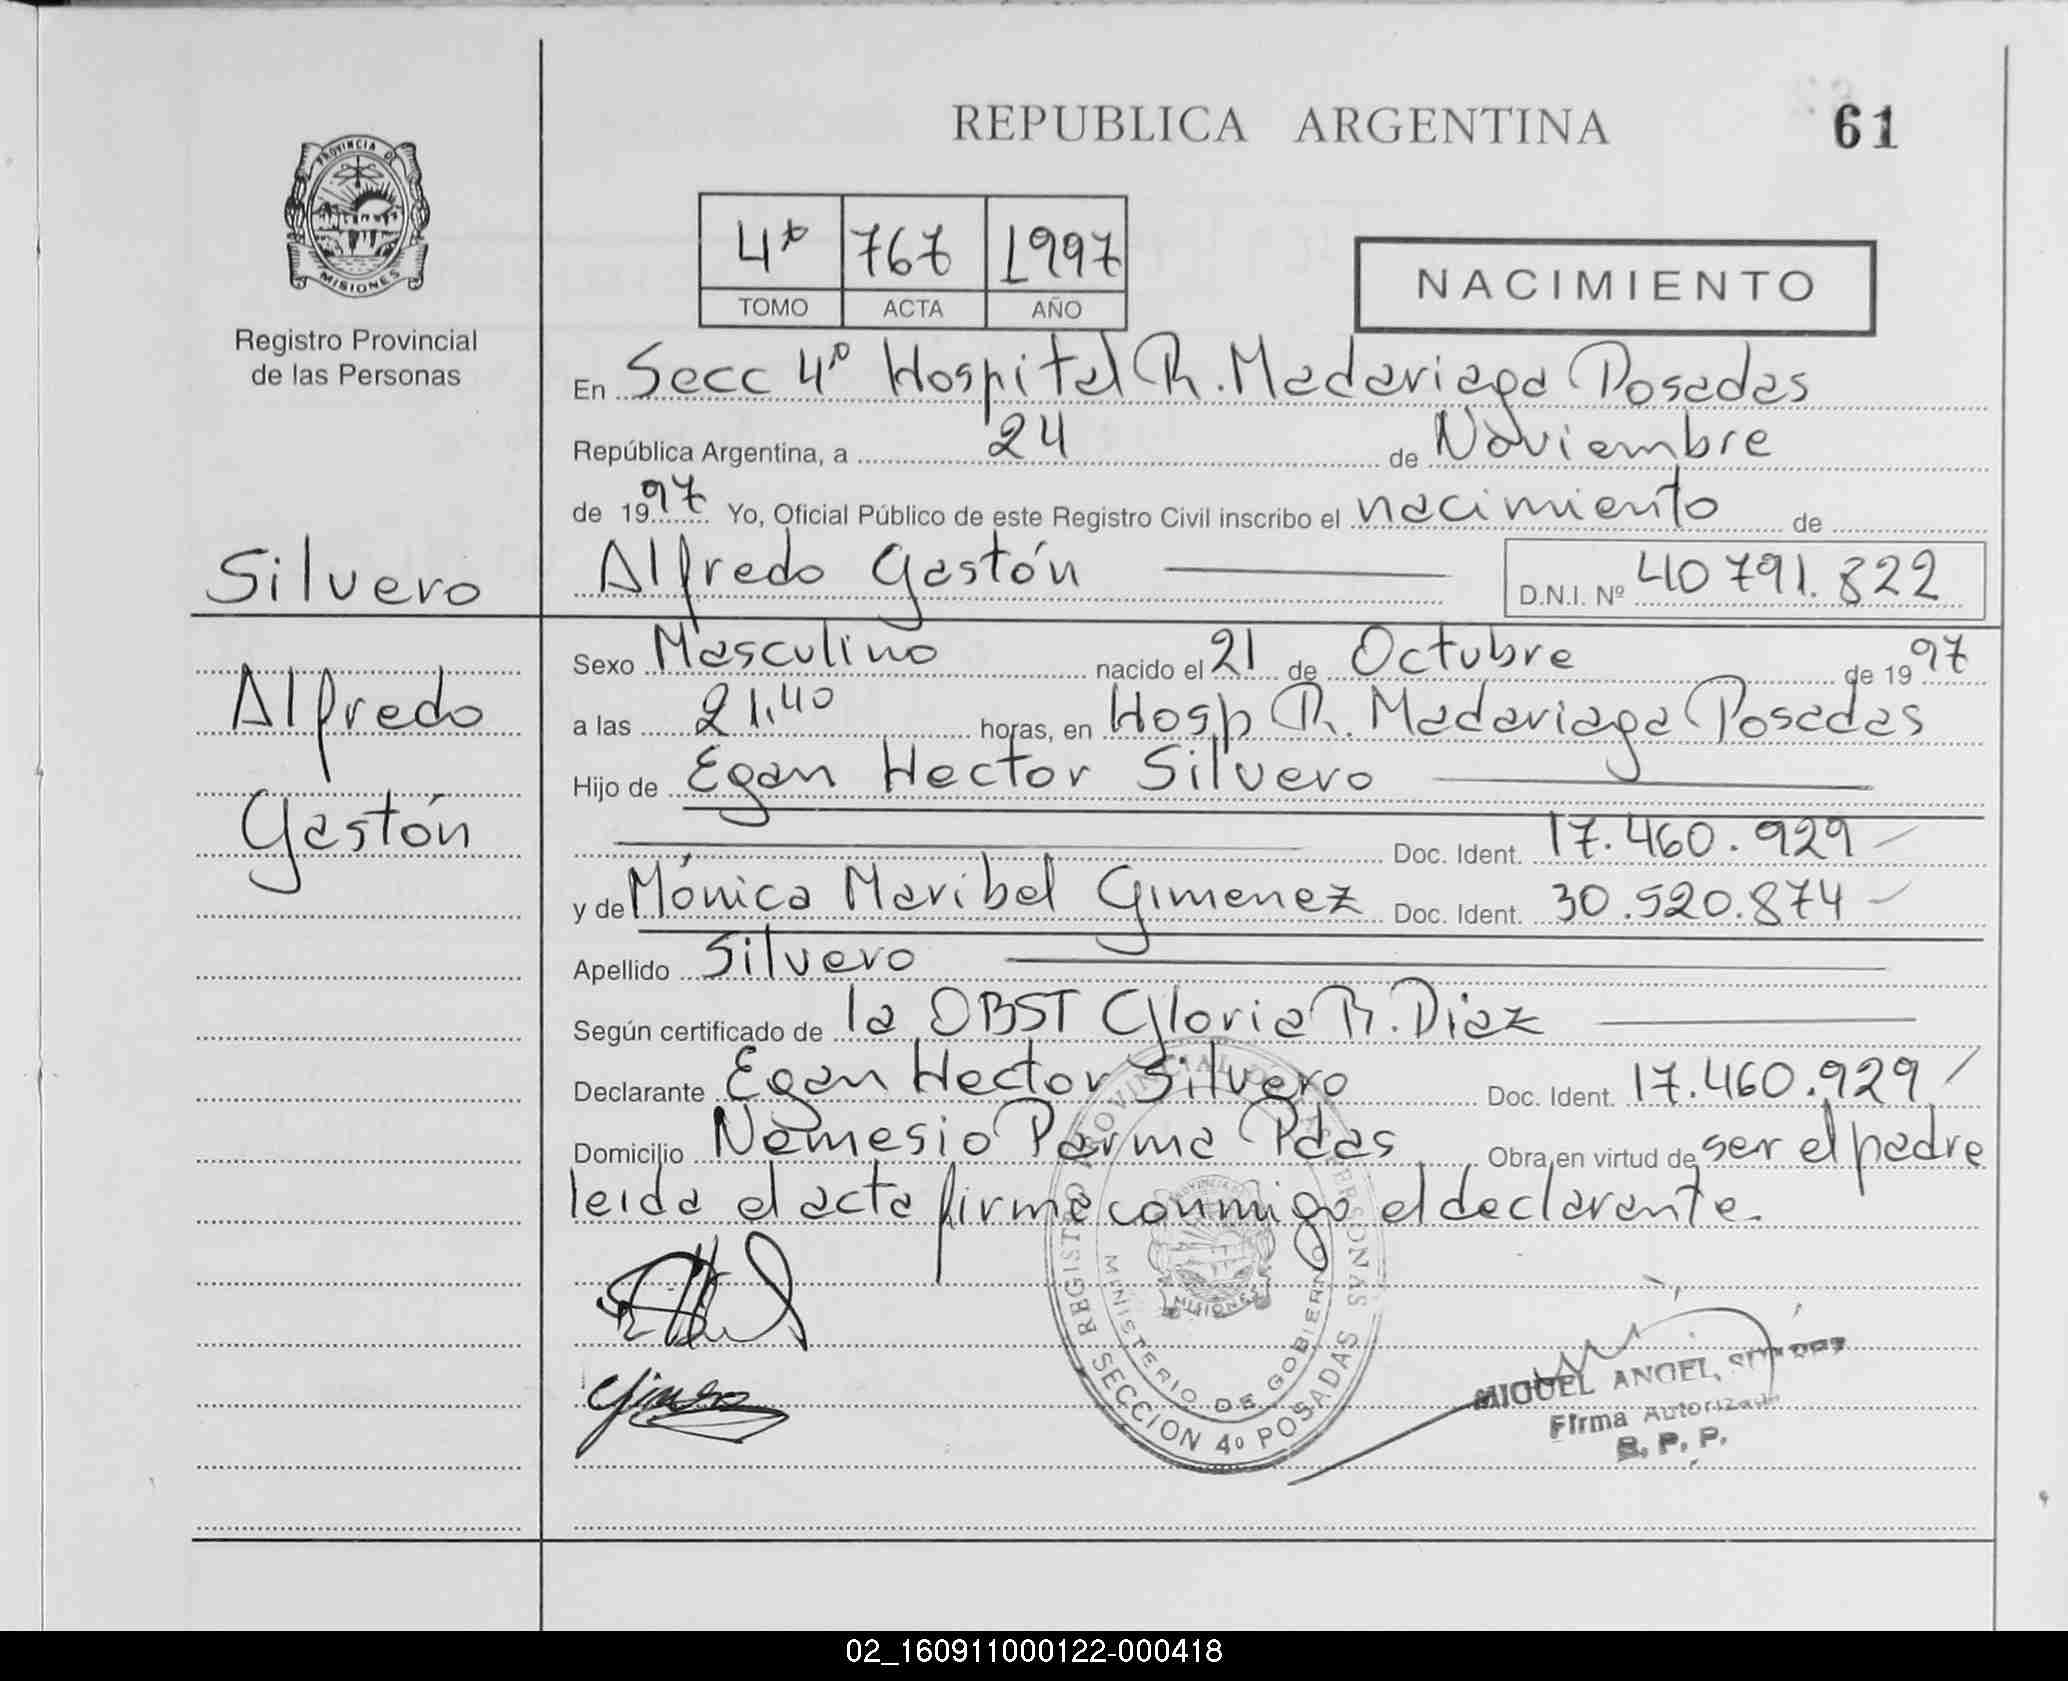 REPUBLICA ARGENTINA
61
PROVINCIA DE
MISIONES
Registro Provincial
de las Personas
4º 767 1997
TOMO ACTA AÑO
NACIMIENTO
En Secc 4º Hospital R. Madariaga Posadas
República Argentina, a 24 de Noviembre
de 1997 Yo, Oficial Público de este Registro Civil inscribo el nacimiento de
Silvero
Alfredo Gastón D.N.I. Nº 40791.822
Sexo Masculino nacido el 21 de Octubre de 1997
Alfredo
a las 21,40 horas, en Hosp R. Madariaga Posadas
Hijo de Egan Hector Silvero
Gastón
Doc. Ident. 17.460.929
y de Mónica Maribel Gimenez Doc. Ident. 30.520.874
Apellido Silvero
Según certificado de la OBST Gloria R. Diaz
Declarante Egan Hector Silvero Doc. Ident. 17.460.929
Domicilio Nemesio Parma Pdas Obra en virtud de ser el padre
leida el acta firma conmigo el declarante.
REGISTRO PROVINCIAL DE LAS PERSONAS
MINISTERIO DE GOBIERNO
SECCION 4º POSADAS
MISIONES
MIGUEL ANGEL
Firma Autorizada
R. P. P.
02_160911000122-000418